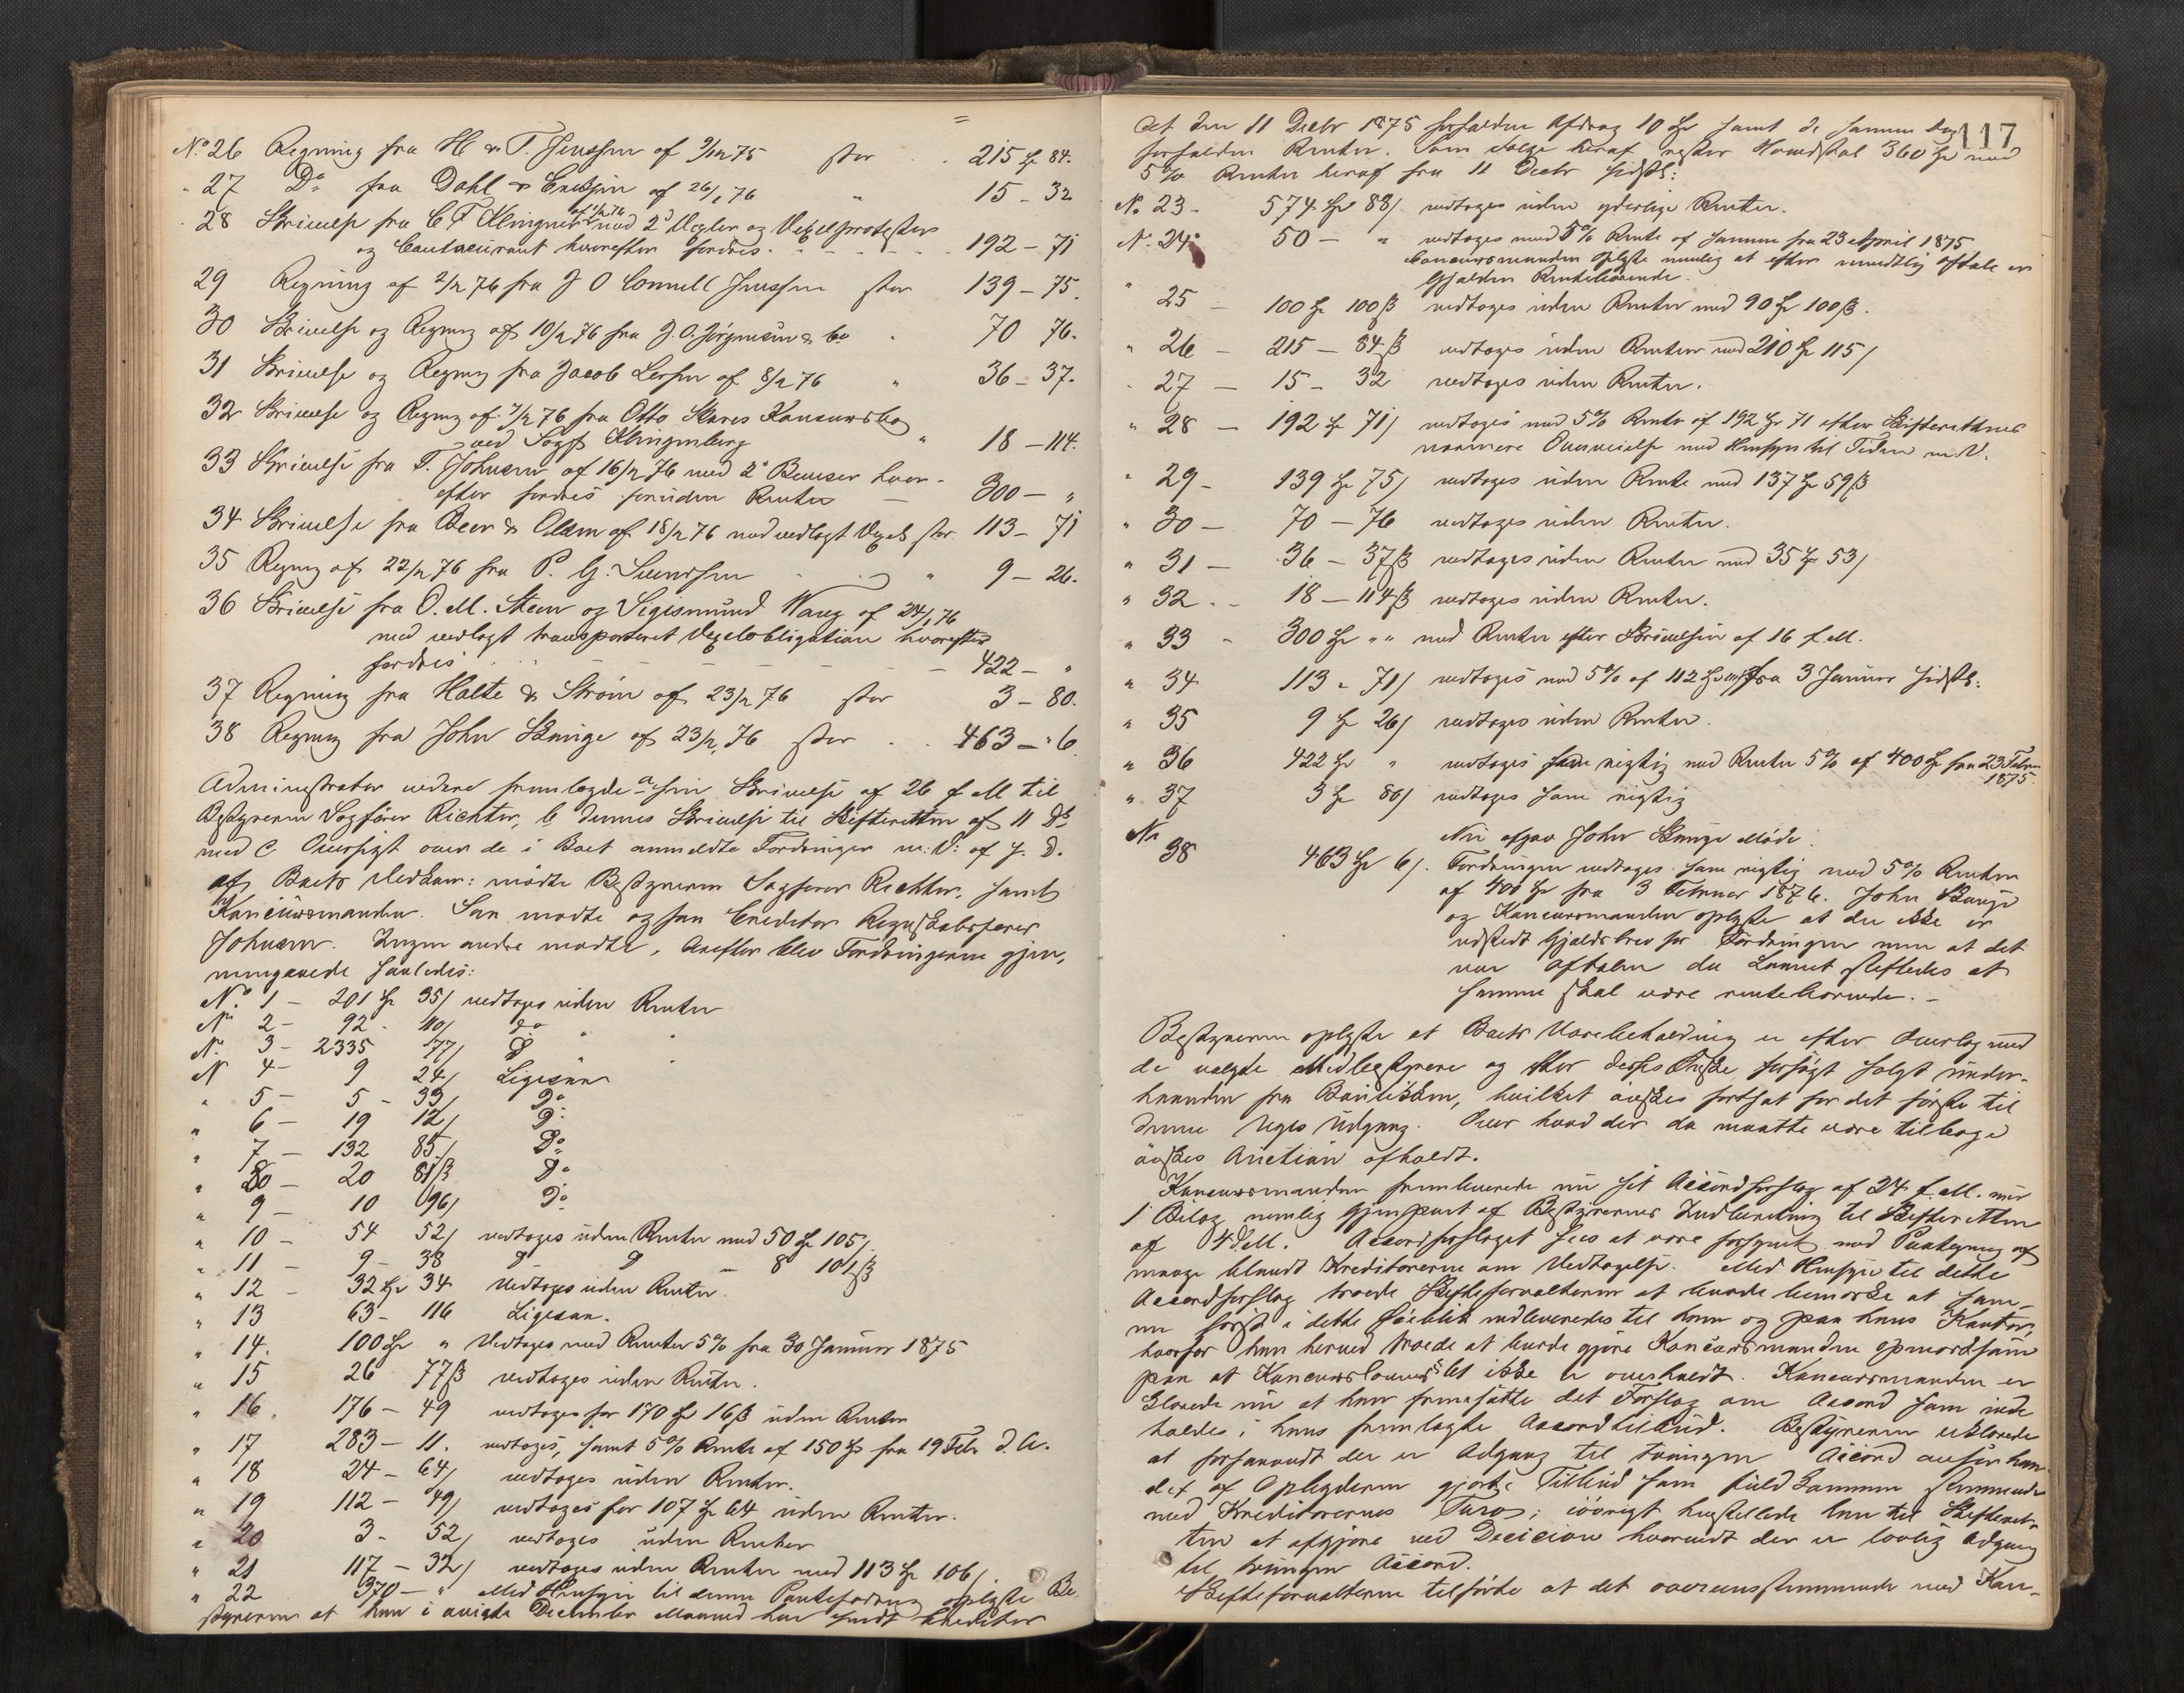 No 26 Regning fra H & T. Jenssen af 9/12 75 stor 215 Sp 84.
" 27 Do fra Dahl & af 26/1 76 " 15 - 32
28 Skrivelse fra C F Klingner med 2d Vexler og Vexelprotester
og Contacurant hvorefter fordres 192 - 71
29 Regning af 2/2 76 fra J O Connell Jenssen stor 139 - 75.
30 Skrivelse og Regning af 10/2 76 fra J. O. Jørgensen & Co 70 76.
31 Skrivelse og Regning fra Jacob Lersen af 8/2 76 " 36 - 37.
32 Skrivelse og Regng af 7/2 76 fra Otto Konkursbo
ved Sagf Klingenberg " 18 - 114.
33 Skrivelse fra T. Johnsen af 16/2 76 med 2 Beviser hvor-
efter fordres foruden Renter 300 - "
34 Skrivelse fra Beer & af 18/2 76 med vedlagt Vexel stor 113 - 71
35 Regng af 22/2 76 fra P. G. Svendsen " 9 - 26.
36 Skrivelse fra O. M. Steen og Sigismund Wang af 24/1 76
med vedlagt transporteret Vexelobligation hvorefter
fordres 422 - "
37 Regning fra Halte & Strøm af 23/2 76 stor 3 - 80.
38 Regning fra John af 23/2 76 stor 463 - " 6
Administrator videre fremlagde a sin Skrivelse af 26 f M til
Bestyreren Sagfører Richter, b dennes Skrivelse til Skifteretten af 11 Ds
med c Oversigt over de i Boet anmeldte Fordringer m: V: af s. D.
Af Boets Vedkom: mødte Bestyreren Sagfører Richter, samt
Konkursmanden. Saa mødte ogsaa Creditor Regnskabsfører
Johnsen. Ingen andre mødte. Derefter blev Fordringerne gjen-
nemgaaede saaledes:
No 1 - 201 Sp 35/ vedtages uden Renter
No 2 - 92 - 110/ do "
No 3 - 2335 77/ D "
N 4 - 9 24/ Ligesaa
" 5 - 5 - 33/ Do
" 6 - 19 12/ D:
" 7 - 132 85/ Do
" 8 - 20 81 ß Do
" 9 - 10 96/ Do
" 10 - 54 52/ vedtages uden Renter med 50 Sp 105/
" 11 - 9 - 38 D D - 8 101 ß
" 12 - 32 Sp 34 Vedtages uden Renter.
" 13 63 - 116 Ligesaa.
" 14. 100 Sp " Vedtages med Renter 5% fra 30 Januar 1875
" 15 26 77 ß vedtages uden Renter.
" 16. 176 - 49 vedtages for 170 Sp 16 ß uden Renter
" 17 283 - 11. vedtages, samt 5% Rente af 150 Sp fra 19 Febr d. A.
" 18 24 - 64/ vedtages uden Renter.
" 19 112 - 49/ vedtages for 107 Sp 64 uden Renter.
" 20 3 - 52/ vedtages uden Renter
" 21 117 - 32/ vedtages uden Renter med 113 Sp 106/.
" 22 370 - " Med Hensyn til denne Pantefordring oplyste Be
styreren at han i avigte December Maaned har sendt Kreditor
117
det den 11 Decbr 1875 forfaldne Afdrag 10 Sp samt de samme Dag
forfaldne Renter. Som Følge heraf rester Hovedstol 360 Sp med
5% Renter heraf fra 11 Decbr sidstl:
No 23 - 574 Sp 88/ vedtages uden yderlige Renter.
No 24 50 - " vedtages med 5% Rente af samme fra 23 April 1875
Concursmanden oplyste nemlig at efter mundtlig Aftale er
Gjælden Rentebærende.
" 25 - 100 Sp 100 ß vedtages uden Renter med 90 Sp 100 ß.
" 26 - 215 - 84 ß vedtages uden Renter med 210 Sp 115/
" 27 - 15 - 32 vedtages uden Renter.
" 28 - 192 Sp 71/ vedtages med 5% Rente af 192 Sp 71 efter Skifterettens
nærmere med Hensyn til Tiden m. V.
" 29 - 139 Sp 75/ vedtages uden Rente med 137 Sp 59 ß
" 30 - 70 - 76 vedtages uden Renter.
" 31 - 36 - 37 ß vedtages uden Renter med 35 Sp 53/
" 32 - 18 - 114 ß vedtages uden Renter.
" 33 - 300 Sp " " med Renter efter Skrivelsen af 16 f. M.
" 34 113 " 71/ vedtages med 5% af 112 Sp fra 3 Januar sidstl:
" 35 9 Sp 26/ vedtages uden Renter.
" 36 422 Sp " vedtages som rigtig med Renter 5% af 400 Sp fra 23 Febru
1875.
" 37 3 Sp 80/ vedtages som rigtig
No Nu afgav John Møde
38 463 Sp 6/. Fordringen vedtages som rigtig med 5% Renter
af 400 Sp fra 3 Februar 1876. John
og Konkursmanden oplyste at der ikke er
udstedt Gjældsbrev for Fordringen men at det
var Aftalen da Laanet stiftedes at
samme skal være rentebærende. -
Bestyreren oplyste at Boets Varebeholdning er efter Overlæg med
de valgte Medbestyrere og efter deres Ønske forsøgt solgt under-
haanden fra Boutikken, hvilket ønskes fortsat for det første til
denne Uges Udgang. Over hvad der da maatte være tilbage
ønskes Auction afholdt.
Konkursmanden fremleverede nu sit Accordforslag af 24 f. M. med
1 Bilag nemlig Gjenpart af Bestyrernes Indberetning til Skifteretten
af 4 d M. Accordforslaget sees at være forsynet med Paategning af
mange blandt Kreditorerne om Vedtagelse. Med Hensyn til dette
Accordforslag troede Skifteforvalteren at burde bemærke at sam-
me først i dette Øieblik indleveredes til ham og paa hans Kontor,
hvorfor han herved troede at burde gjøre Konkursmanden opmærksom
paa at Konkurslovens § ikke er overholdt. Konkursmanden er
klærede nu at han fremsatte det Forslag om Accord som inde
holdes i hans fremlagte Accordtilbud. Bestyreren erklærede
at forsaavidt der er Adgang til tvungen Accord anser han
det af Opbyderen gjorte Tilbud som fuldkommen stemmende
med Kreditorernes Tarv; iøvrigt henstillede han til Skifteret-
ten at afgjøre ved Decision hvorvidt der er lovlig Adgang
til tvungen Accord.
Skifteforvalteren tilførte at det overensstemmende med Kon-